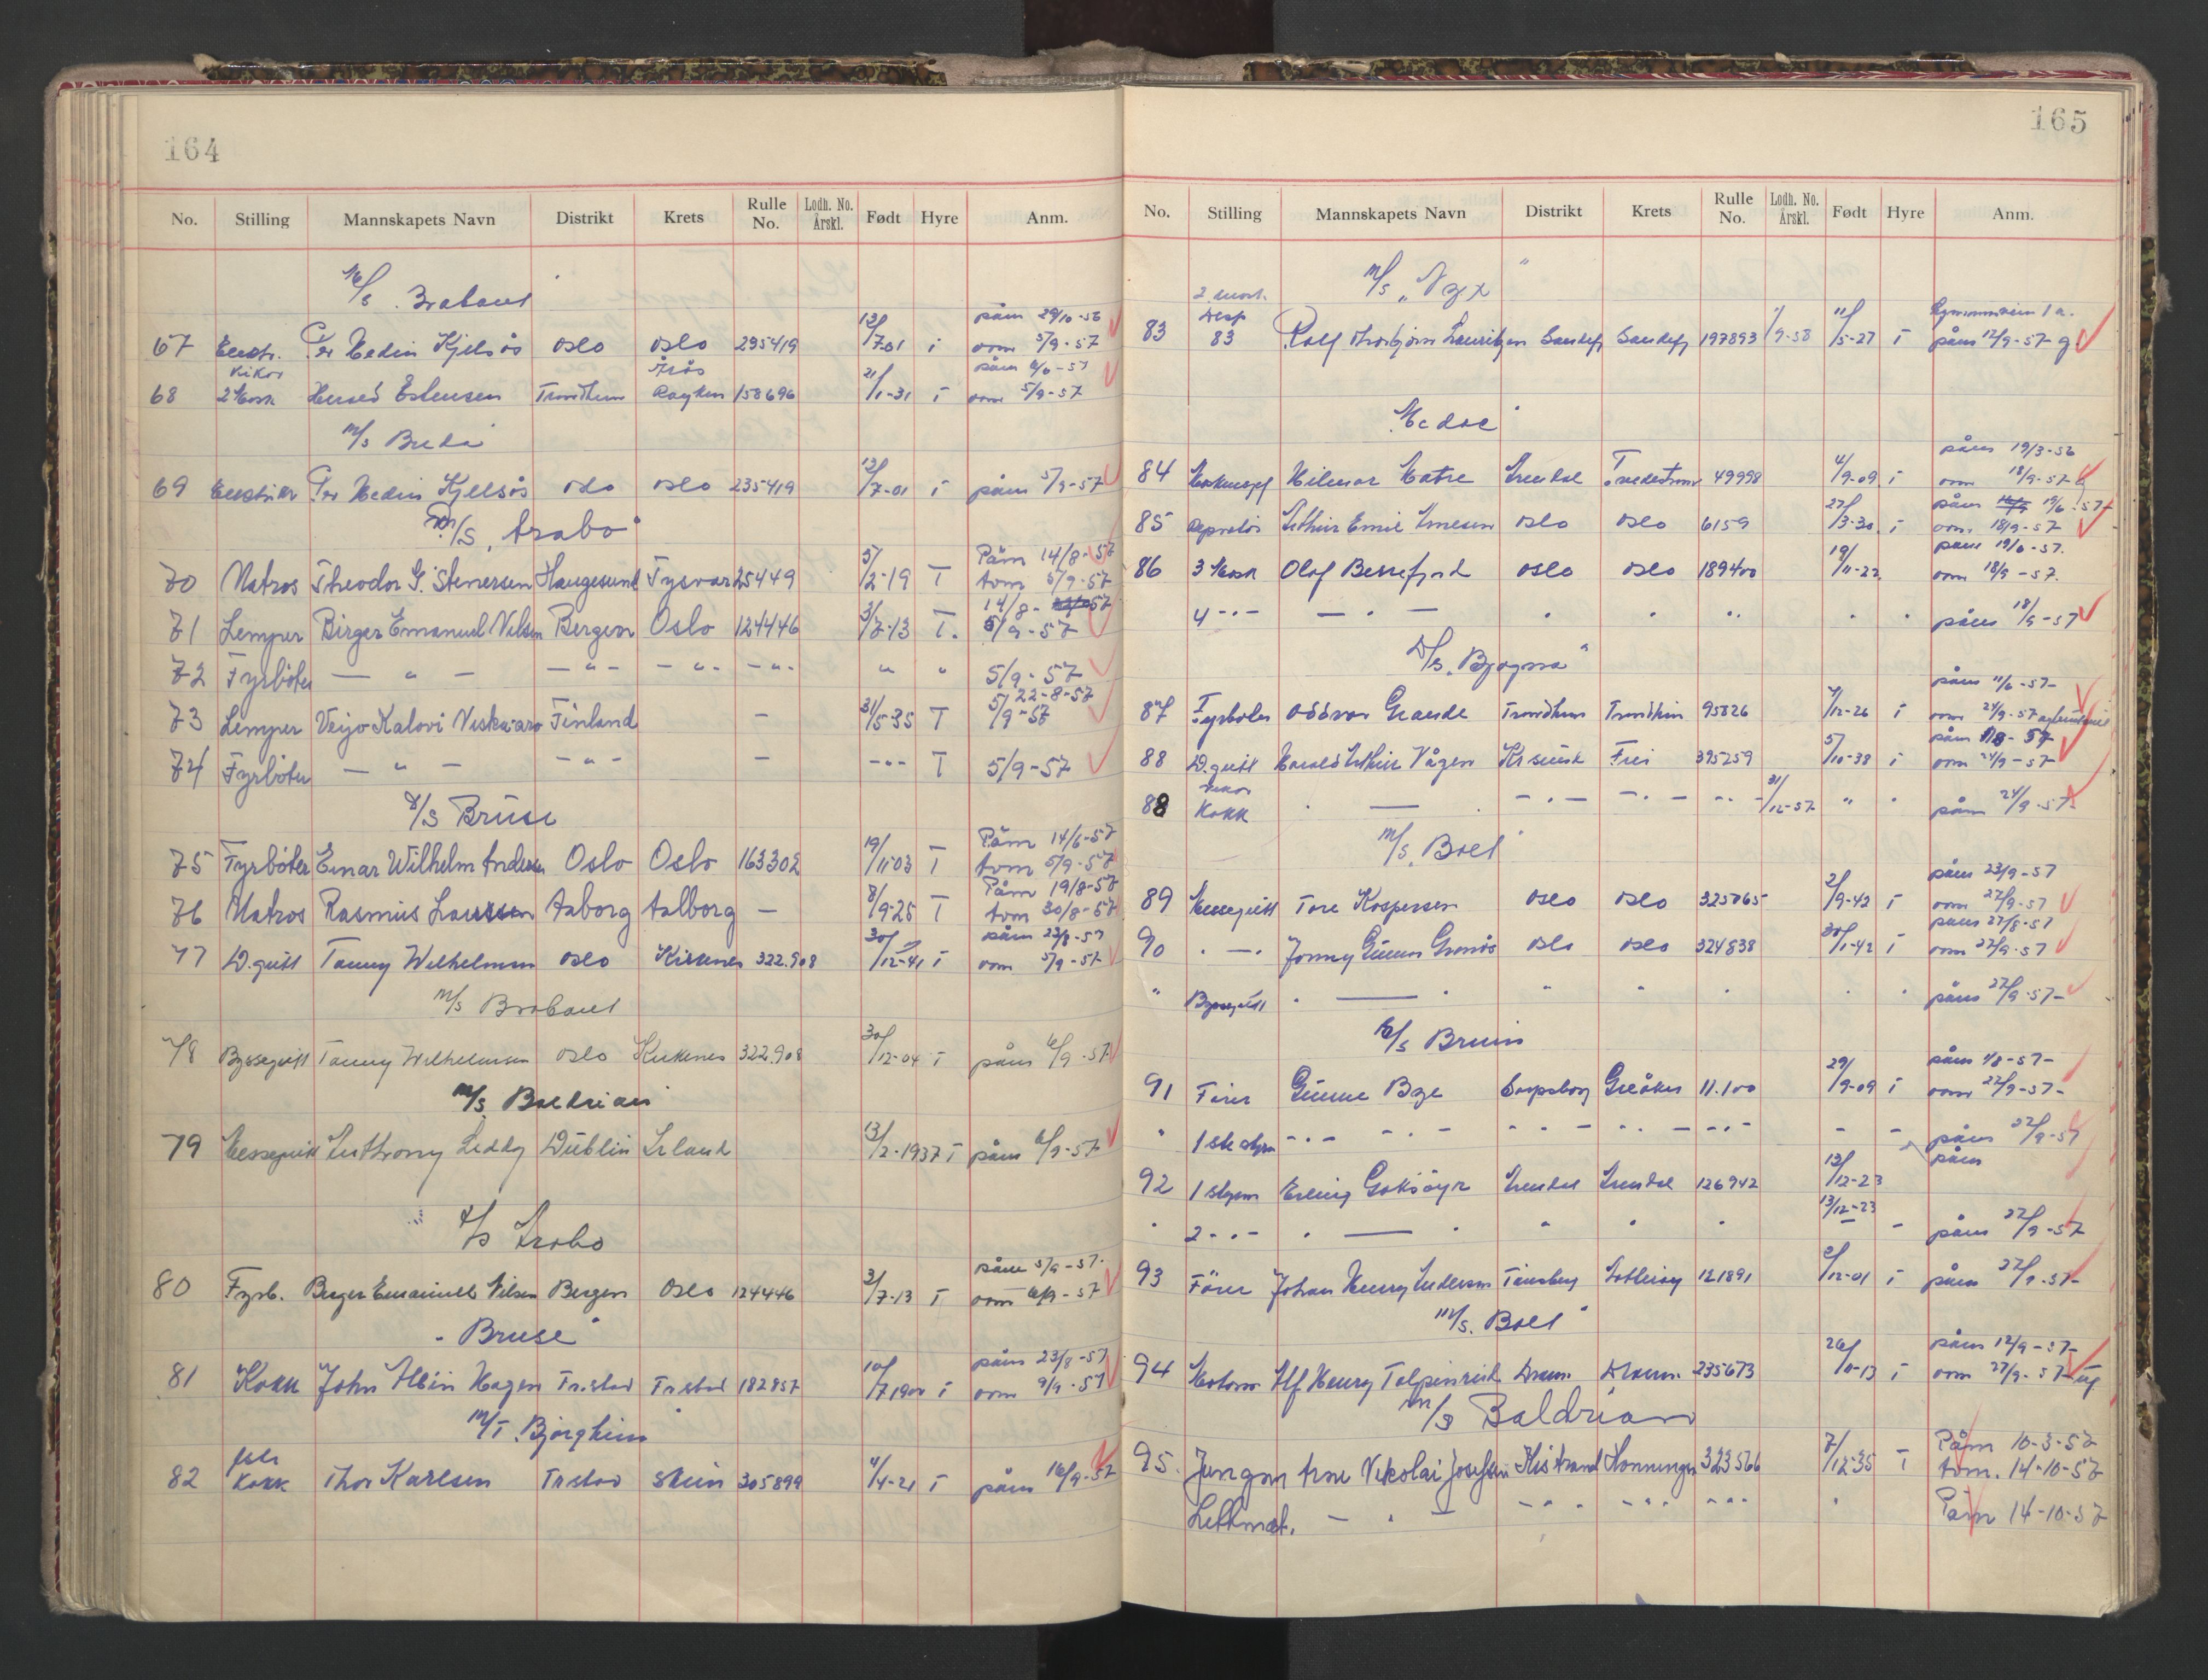 164
No. Stilling Mannskapets Navn Distrikt Krets Rulle No. Lodh. No. Årskl. Født Hyre Anm.
M/s "Brabant"
påm 29/10-56
67 Elektr. Per Hedin Kjelsås Oslo Oslo 235419 12/7-01 i avm 5/9-57
Vikar Åros påm 6/6-57
68 2 Mask Estensen Trondheim Røyken 158696 21/1-31 i avm 5/9-57
M/s Breda
69 Elektriker Per Hedin Kjelsås Oslo Oslo 235419 12/7-01 i påm 5/9-57
M/S "Arabo"
Påm 14/8-57
70 Matros Theodor G. Stenersen Haugesund Tysvær 25449 5/2-19 T avm 5/9-57
14/8-57
71 Lemper Birger Emanuel Nilsen Bergen Oslo 124446 3/7-13 T. 5/9-57
72 Fyrbøter — " — — " — — " — — " — " " 5/9-57
22-8-57
73 Lemper Veijo Kalovi Finland — 31/5-35 T 5/9-57
74 Fyrbøter — " — — " — — — " — T 5/9-57
D/S Bruse
Påm 14/6-57
75 Fyrbøter Einar Wilhelm Andersen Oslo Oslo 163302 19/11-03 T avm 5/9-57
Påm 19/8-57
76 Matros Rasmus Laursen Aaborg Aalborg — 8/9-25 T avm 30/8-57
påm 23/8-57
77 D.gutt Tanny Wilhelmsen Oslo Kirkenes 322.908 30/12-41 i avm 5/9-57
M/s Brabant
78 Byssegutt Tanny Wilhelmsen Oslo Kirkenes 322.908 30/12-04 i påm 6/9-57
M/s Baldrian
79 Messegutt Anthony Leddy Dublin Irland 13/2-1937 i påm 6/9-57
D/S Arabo
påm 5/9-57.
80 Fyrb. Birger Emanuell Nilsen Bergen Oslo 124446 3/7-13 i avm 6/9-57
"Bruse"
påm 23/8-57
81 Kokk John Albin Hagen Fr.stad Fr.stad 182857 10/7 1900 i avm 9/9-57
M/T "Bjørgheim"
82 Kokk Thor Karlsen Fr.stad Skien 305899 4/4-21 i påm 16/9-57
165
No. Stilling Mannskapets Navn Distrikt Krets Rulle No. Lodh. No. Årskl. Født Hyre Anm.
M/s "Nyx"
2. mask.
Disp
83 83 Rolf Thorbjørn Lauritzen Sandefj Sandefj 197893 1/9-58 11/5-27 i påm 12/9-57
"Medoc"
påm 19/3-56
84 Hilmar Matre Arendal Tvedestrand 49998 4/9-09 i avm 18/9-57
påm 19/6-57
85 Reparatør Arthur Emil Arnesen Oslo Oslo 6159 27/3-30 i avm. 18/9-57
påm 19/6-57.
86 3 Mask Olaf Bessefjord Oslo Oslo 189400 19/11-22 avm 18/9-57.
4 - " - — " — " " " " " påm 18/9-57
D/s "Bjørgna"
påm 11/6-57
87 Fyrbøter Oddvar Grande Trondheim Trondheim 95826 7/12-26 i avm 24/9-57
påm 1/8-57
88 D.gutt Harald Arthur Vågen Kr.sund Frei 395259 5/10-38 i avm 24/9-57
Vikar
88 Kokk " — " - " - - " - - " - 31/12-57 " " påm 24/9-57
M/s "Boel"
påm 23/9-57
89 Messegutt Tore Kaspersen Oslo Oslo 325765 2/9-42 i avm 27/9-57
påm 27/8-57
90 " — " Jonny Gunnar Grønås Oslo Oslo 324838 30/1-42 i avm 27/9-57
" Byssegutt " — " " " " " " påm 27/9-57-
D/s Bruin
påm 1/8-57-
91 Fører Gunnar Bye Sarpsborg Greåker 11.100 29/9-09 i avm 27/9-57-
" 1ste styrm - " - - " - - " - - " - - " - - - påm 27/9-57
påm
92 1 styrm Erling Goksøyr Arendal Arendal 126942 13/12-23
13/12-23
" 2 - " - " — " " " " — - påm 27/9-57
93 Fører Johan Henry Andersen Tønsberg Nøtterøy 121891 2/12-01 i påm 27/9-57-
M/s. "Boel"
påm 12/9-57-
94 Motorm Alf Henry Dram. Dram. 235673 26/10-13 i avm 27/9-57
M/S Baldrian
Påm 10-3-57
95. Jungm Arne Nikolai Josefsen Kistrand Honningsv 323566 7/12-35 T avm. 14-10-57
Lettmat. — " — - " - - " - - " - " Påm 14-10-57